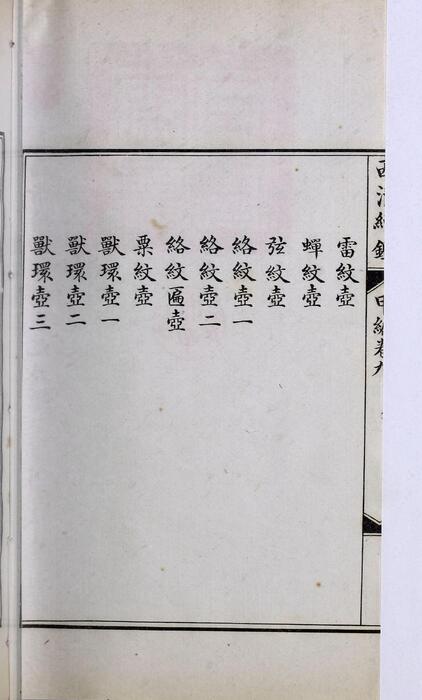 西清續鑑 甲編卷九
雷紋壺
蟬紋壺
弦紋壺
絡紋壺一
絡紋壺二
絡紋匾壺
粟紋壺
獸環壺一
獸環壺二
獸環壺三